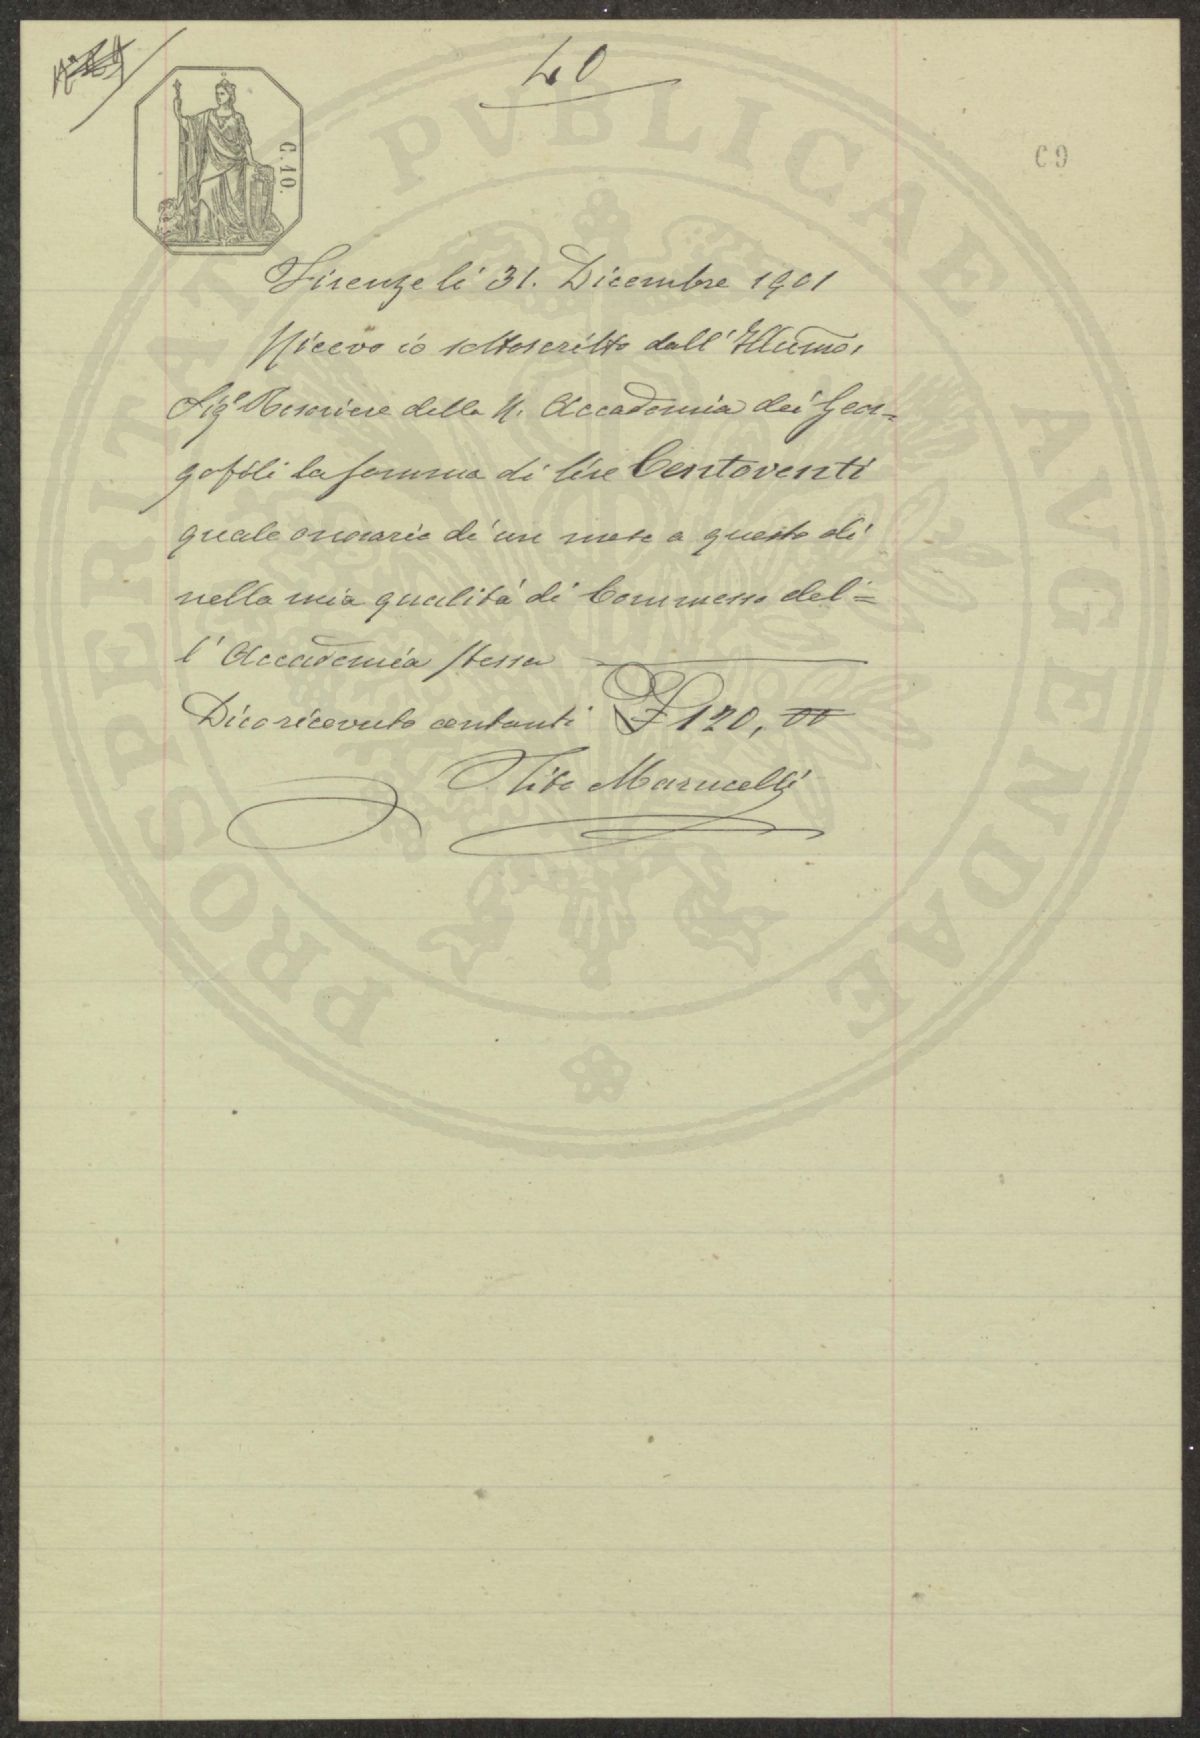 40
C. 10.
C9
Firenze lì 31. Dicembre 1901
Ricevo io sottoscritto dall'Illumo,
Sigr Tesoriere della R. Accademia dei Geor=
gofili la somma di lire Centoventi
quale onorario di un mese a questo dì
nella mia qualità di Commesso del=
l'Accademia stessa
Dico ricevuto contanti £ 120, 00
Tito Marucelli
PROSPERITATI PVBLICAE AVGENDAE